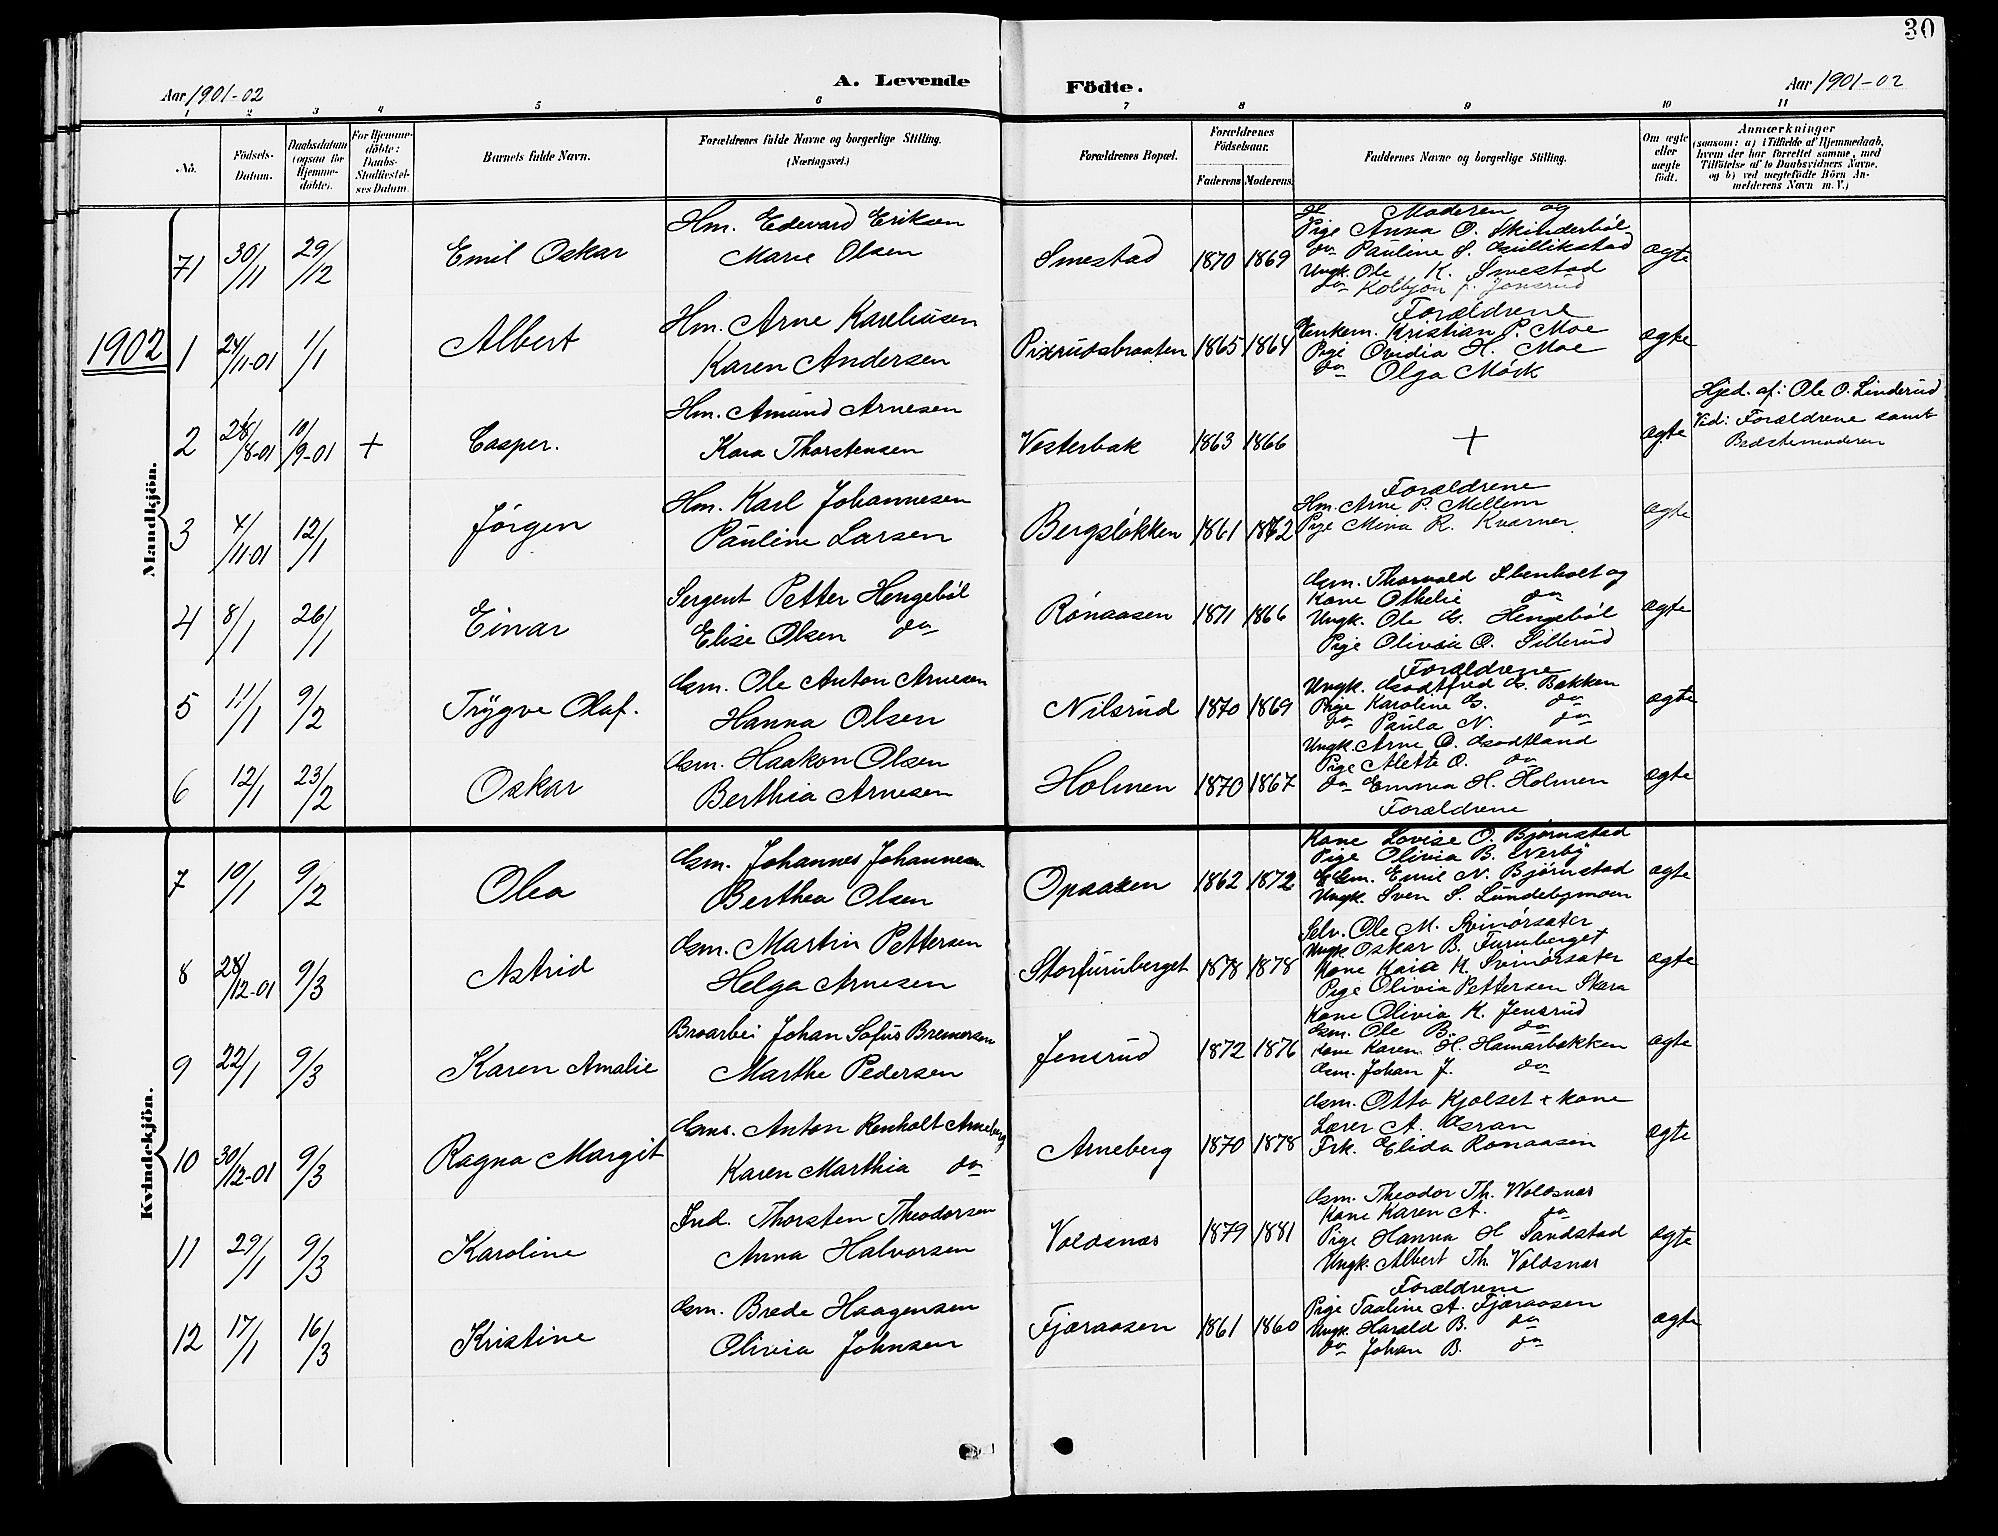 30
Aar 1901-02
A. Levende
Födte.
Aar 1901-02
1 2 3 4 5 6 7 8 9 10 11
No.
Födsels-
Datum.
Daabsdatum
(ogsaa for
Hjemme-
döbte).
For Hjemme-
döbte:
Daabs-
Stadfæstel-
ses Datum.
Barnets fulde Navn.
Forældrenes fulde Navne og borgerlige Stilling.
(Næringsvei.)
Forældrenes Bopæl.
Forældrenes
Födselsaar.
Faderens Moderens
Faddernes Navne og borgerlige Stilling.
Om ægte
eller
uægte
födt.
Anmærkninger
(saasom: a) i Tilfælde af Hjemmedaab,
hvem der har forrettet samme, med
Tilföielse af to Daabsvidners Navne,
og b) ved uægtefödte Börn An-
melderens Navn m. V.)
Mandkjön.
71 30/11 29/12 Emil Oskar
Hm. Edevard Eriksen
Marie Olsen
Smestad 1870 1869
Moderen og
Pige Anna O. Skinderböl
do Pauline S. Gullikstad
Ungk. Ole K. Smestad
do Kolbjön J. Jensrud
ægte
1902
1 24/11-01 1/1 Albert
Hm. Arne Kareliusen
Karen Andersen
Pixrudsbraaten 1865 1864
Forældrene
Enkem. Kristian P. Moe
Pige Ovedia H. Moe
do Olga Möck
ægte
2 28/8-01 10/9-01 + Casper.
Hm. Amund Arnesen
Kara Thorstensen
Vesterbak 1863 1866
+
ægte
Hjed. af: Ole O. Linderud
Ved: Forældrene samt
Bedstemoderen
3 4/11-01 12/1 Jörgen
Hm. Karl Johannesen
Pauline Larsen
Bergslökken 1861 1862
Forældrene
Hm. Arne P. Mellem
Pige Mina R. Kvarner
ægte
4 8/1 26/1 Einar
Sergent Petter Hengeböl
Elise Olsen do
Rönaasen 1871 1866
Gsm. Thorvald Ibenholt og
Kone Othelie do
Ungk. Ole G. Hengeböl
Pige Olivia O. Sillerud
ægte
5 11/1 9/2 Trygve Olaf.
Gsm. Ole Anton Arnesen
Hanna Olsen
Nilsrud 1870 1869
Forældrene
Ungk. Godtfred G. Bakken
Pige Karoline G. do
do Paula N. do
ægte
6 12/1 23/2 Oskar
Gsm. Haakon Olsen
Berthia Arnesen
Holmen 1870 1867
Ungk. Arne O. Godtland
Pige Alette O. do
do Emma H. Holmen
Forældrene
ægte
Kvindekjön.
7 10/1 9/2 Olea
Gsm. Johannes Johannesen
Berthea Olsen
Opaasen 1862 1872
Kone Lovise O. Björnstad
Pige Olivia B. Nerby
Gsm. Emil N. Björnstad
Ungk. Sven S. Lundebymoen
ægte
8 28/12-01 9/3 Astrid
Gsm. Martin Pettersen
Helga Arnesen
Storfuruberget 1878 1878
Selv. Ole M. Svinörsæter
Ungk. Oskar B. Furuberget
Kone Kaia M. Svinörsæter
Pige Olivia Pettersen Skara
ægte
9 22/1 9/3 Karen Amalie
Broarbei Johan Sofus Bremersen
Marthe Pedersen
Jensrud 1872 1876
Kone Olivia K. Jensrud
Gsm. Ole B. do
Kone Karen H. Hamarbakken
Gsm. Johan J. do
ægte
10 30/12-01 9/3 Ragna Margit
Gsm. Anton Renholt Arneberg
Karen Marthia do
Arneberg 1870 1878
Gsm. Otto Kjölset + kone
Lærer A. Asran
Frk. Elida Rönaasen
ægte
11 29/1 9/3 Karoline
Ind. Thorsten Theodorsen
Anna Halvorsen
Voldsnæs 1879 1881
Gsm. Theodor Th. Voldsnæs
Kone Karen A. do
Pige Hanna H Sandstad
Ungk. Albert Th. Voldsnæs
ægte
12 17/1 16/3 Kristine
Gsm. Brede Haagensen
Olivia Johnsen
Fjæraasen 1861 1860
Forældrene
Pige Taaline A. Fjæraasen
Ungk. Harald B. do
do Johan B. do
ægte